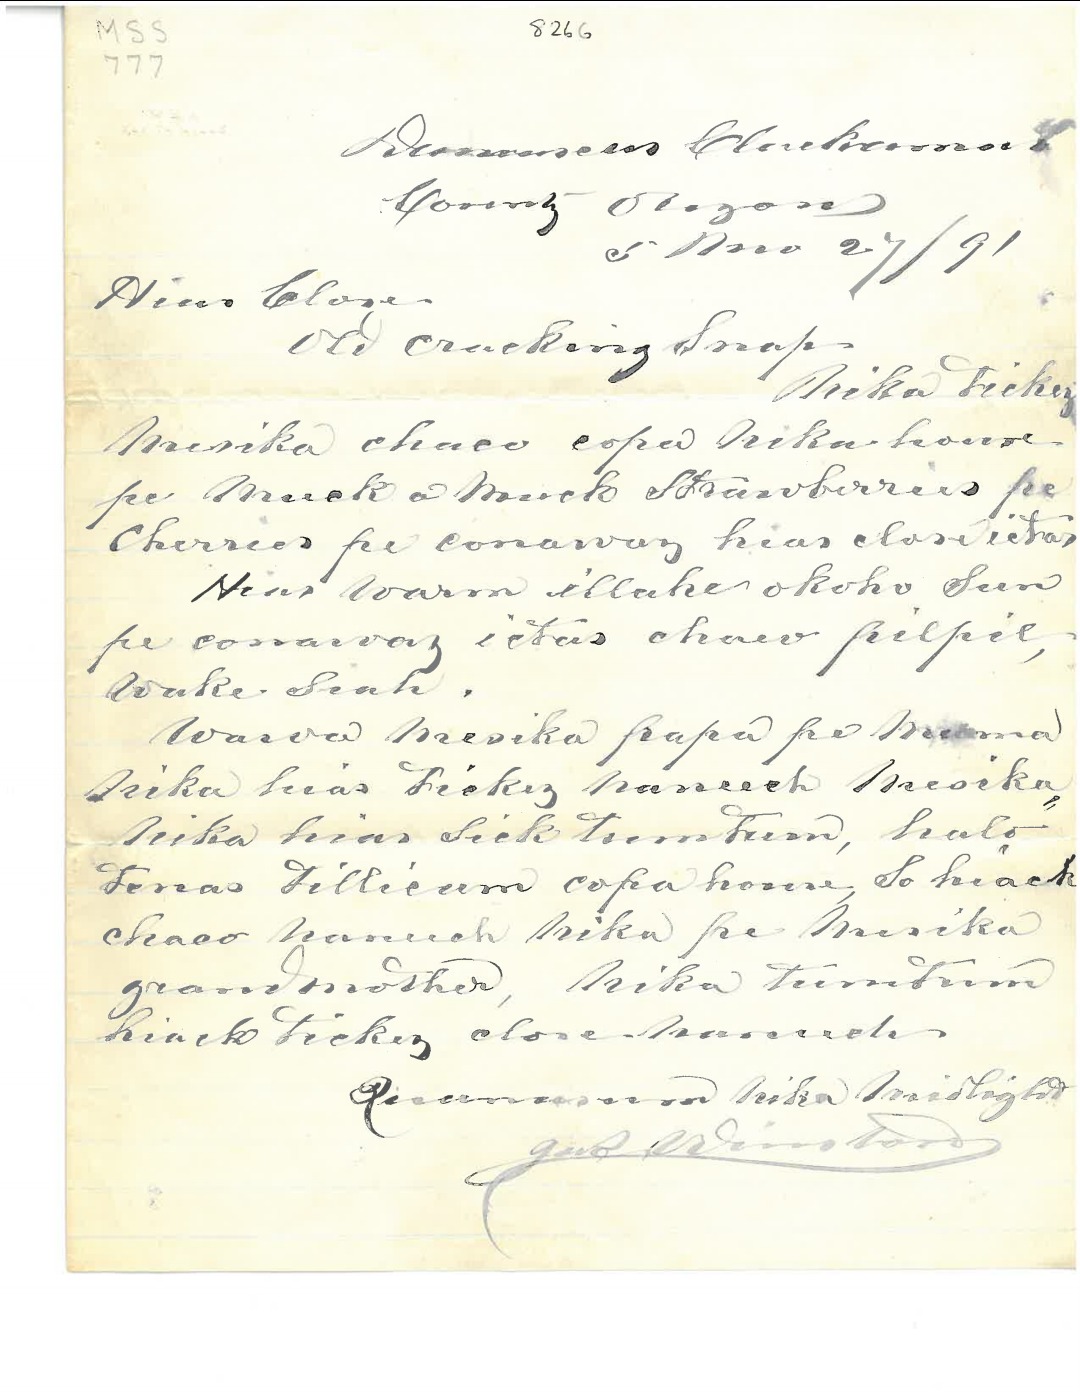 MSS
777
8266
Damascus Clackamas
County Oregon
5 Mo 27/91
Hias Close
Old cracking Snap
Nika tickey
Mesika chaco copa Nika house
pe Muck a Muck Strawberries pe
Cherries pe conaway hias close ictas
Hias Warm illahe okoho Sun
pe conaway ictas chaco pilpil,
Wake Siah.
Wawa Mesika papa pe Mama
Nika hias tickey naneech Mesika"
Nika hias Sick tumtum, halo
tenas tillicum copa house, So hiack
chaco naneech Nika pe Mesika
grandmother, Nika tumtum
hiack tickey close naneech
Quanasum Nika Midlight
Winston